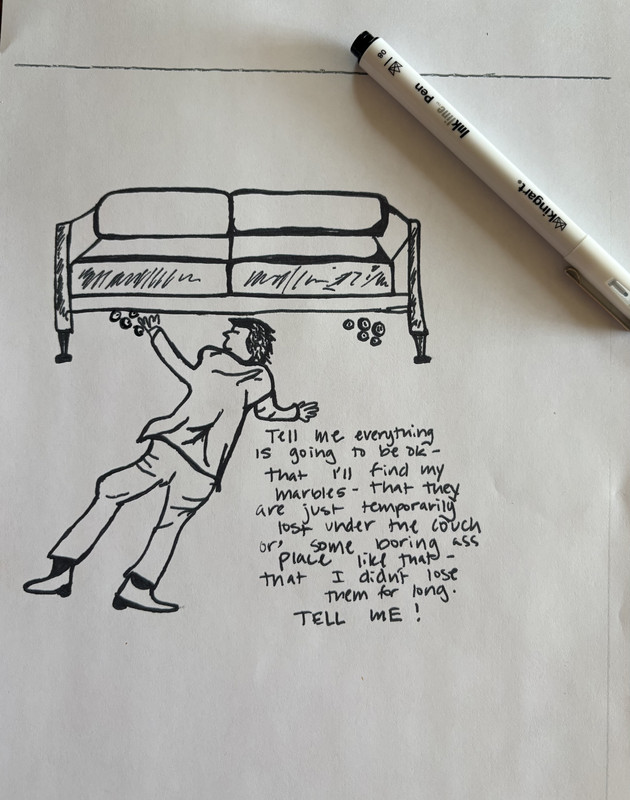 Tell me everything
is going to be ok -
that I'll find my
marbles - that they
are just temporarily
lost under the couch
or, some boring ass
place like that -
that I didn't lose
them for long.
TELL ME!
Kingart.
Inkline Pen